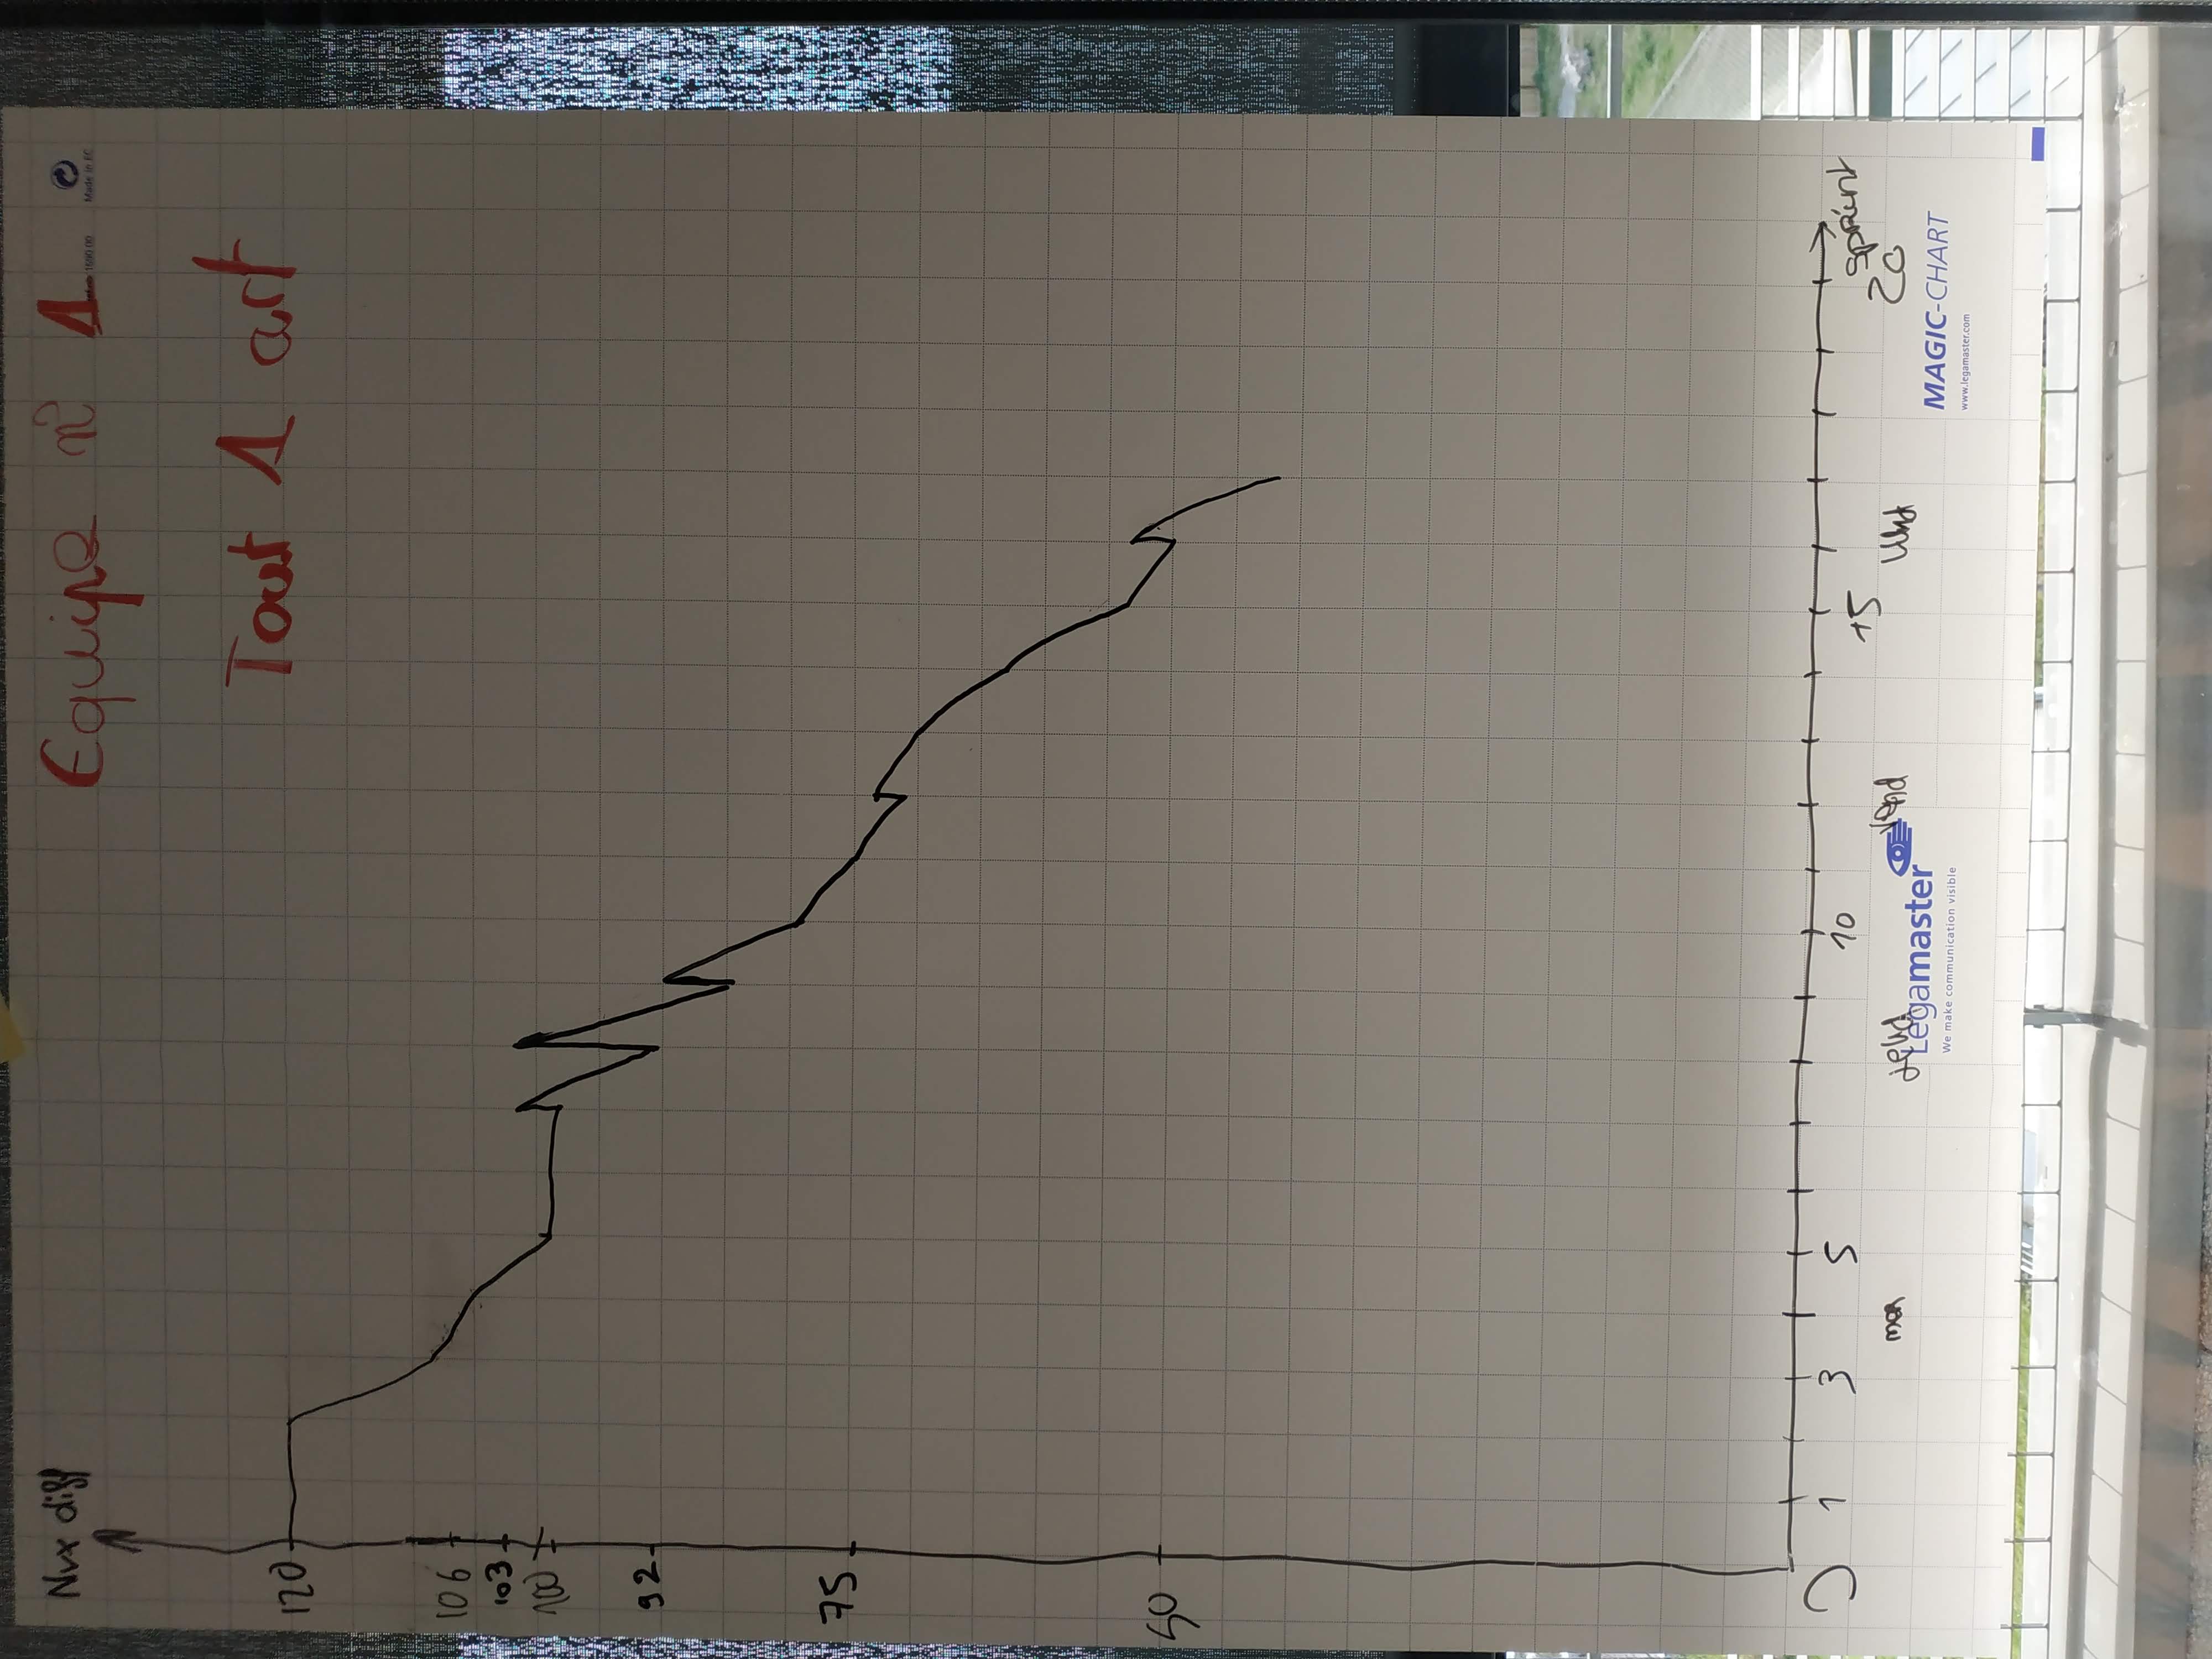 Nvx diff
Equipe n° 1
1690 00
Made in EC
Tout 1 art
120
106
103
100
92
75
50
0 1 3 5 10 15 20
sprint
mer jeud vend lund
Legamaster
We make communication visible
MAGIC-CHART
www.legamaster.com